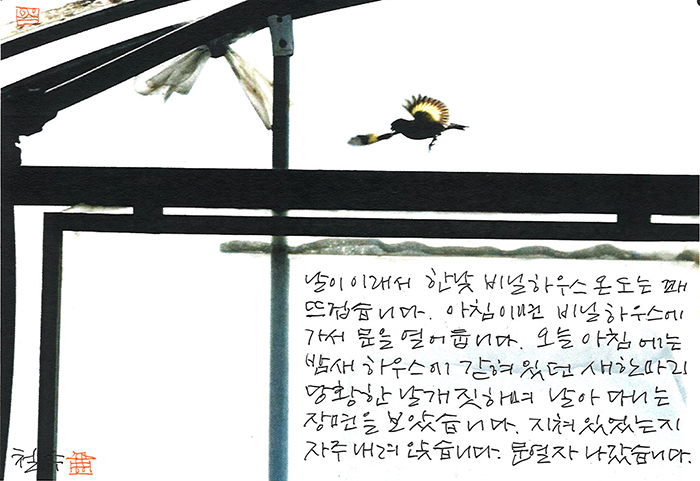 날이 이래서 한낮 비닐하우스 온도는 꽤
뜨겁습니다. 아침이면 비닐하우스에
가서 문을 열어둡니다. 오늘 아침에는
밤새 하우스에 갇혀 있던 새 한마리
당황한 날개짓하며 날아 다니는
장면을 보았습니다. 지쳐 있었는지
자주 내려 앉습니다. 문열자 나갔습니다.
철수